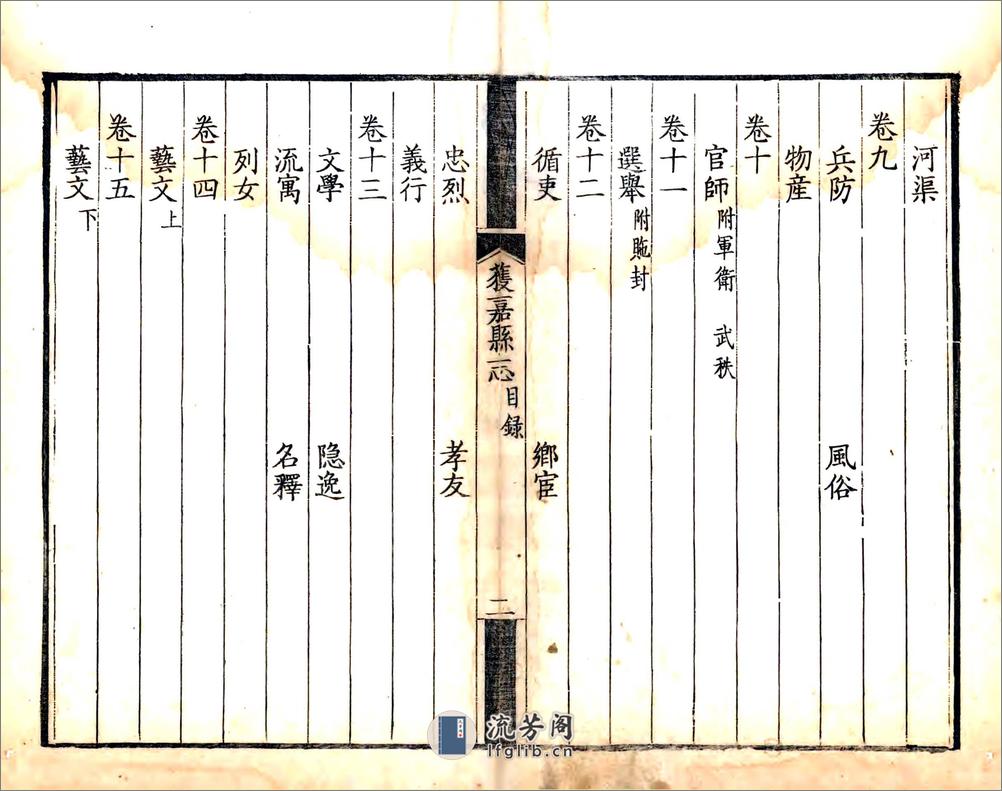 河渠
卷九
兵防 風俗
物産
卷十
官師附軍衛 武秩
卷十一
選舉附貤封
卷十二
循吏 鄉宦
獲嘉縣志 目録 二
忠烈 孝友
義行
卷十三
文學 隐逸
流寓 名釋
列女
卷十四
藝文上
卷十五
藝文下
流芳阁
lfglib.cn